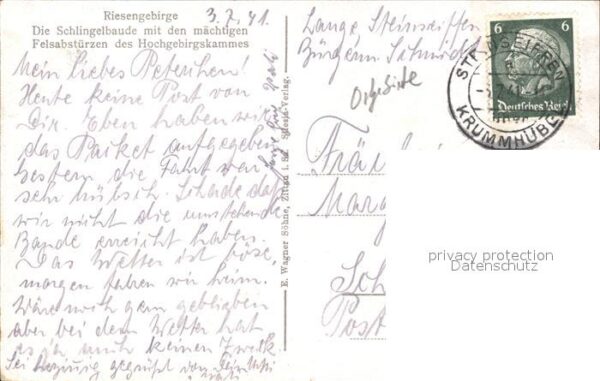 Riesengebirge
Die Schlingelbaude mit den mächtigen
Felsabstürzen des Hochgebirgskammes
3.7.41.
Mein liebes Peterchen!
Heute keine Post von
Dir. Eben haben wir
das Packet aufgegeben
Gestern die Fahrt war
sehr hübsch. Schade daß
wir nicht die umstehende
Baude erreicht haben.
Das Wetter ist böse,
morgen fahren wir heim.
Wäre noch gern geblieben
aber bei dem Wetter hat
es ja auch keinen Zweck
Sei herzinnig gegrüßt von
E. Wagner Söhne, Zittau i. Sa.
Lange, Steinseiffen
Bürgerm.
6 6
Deutsches Reich
STEINSEIFFEN
KRUMMHÜBEL
Frä
Mar
Sch
Post
privacy protection
Datenschutz